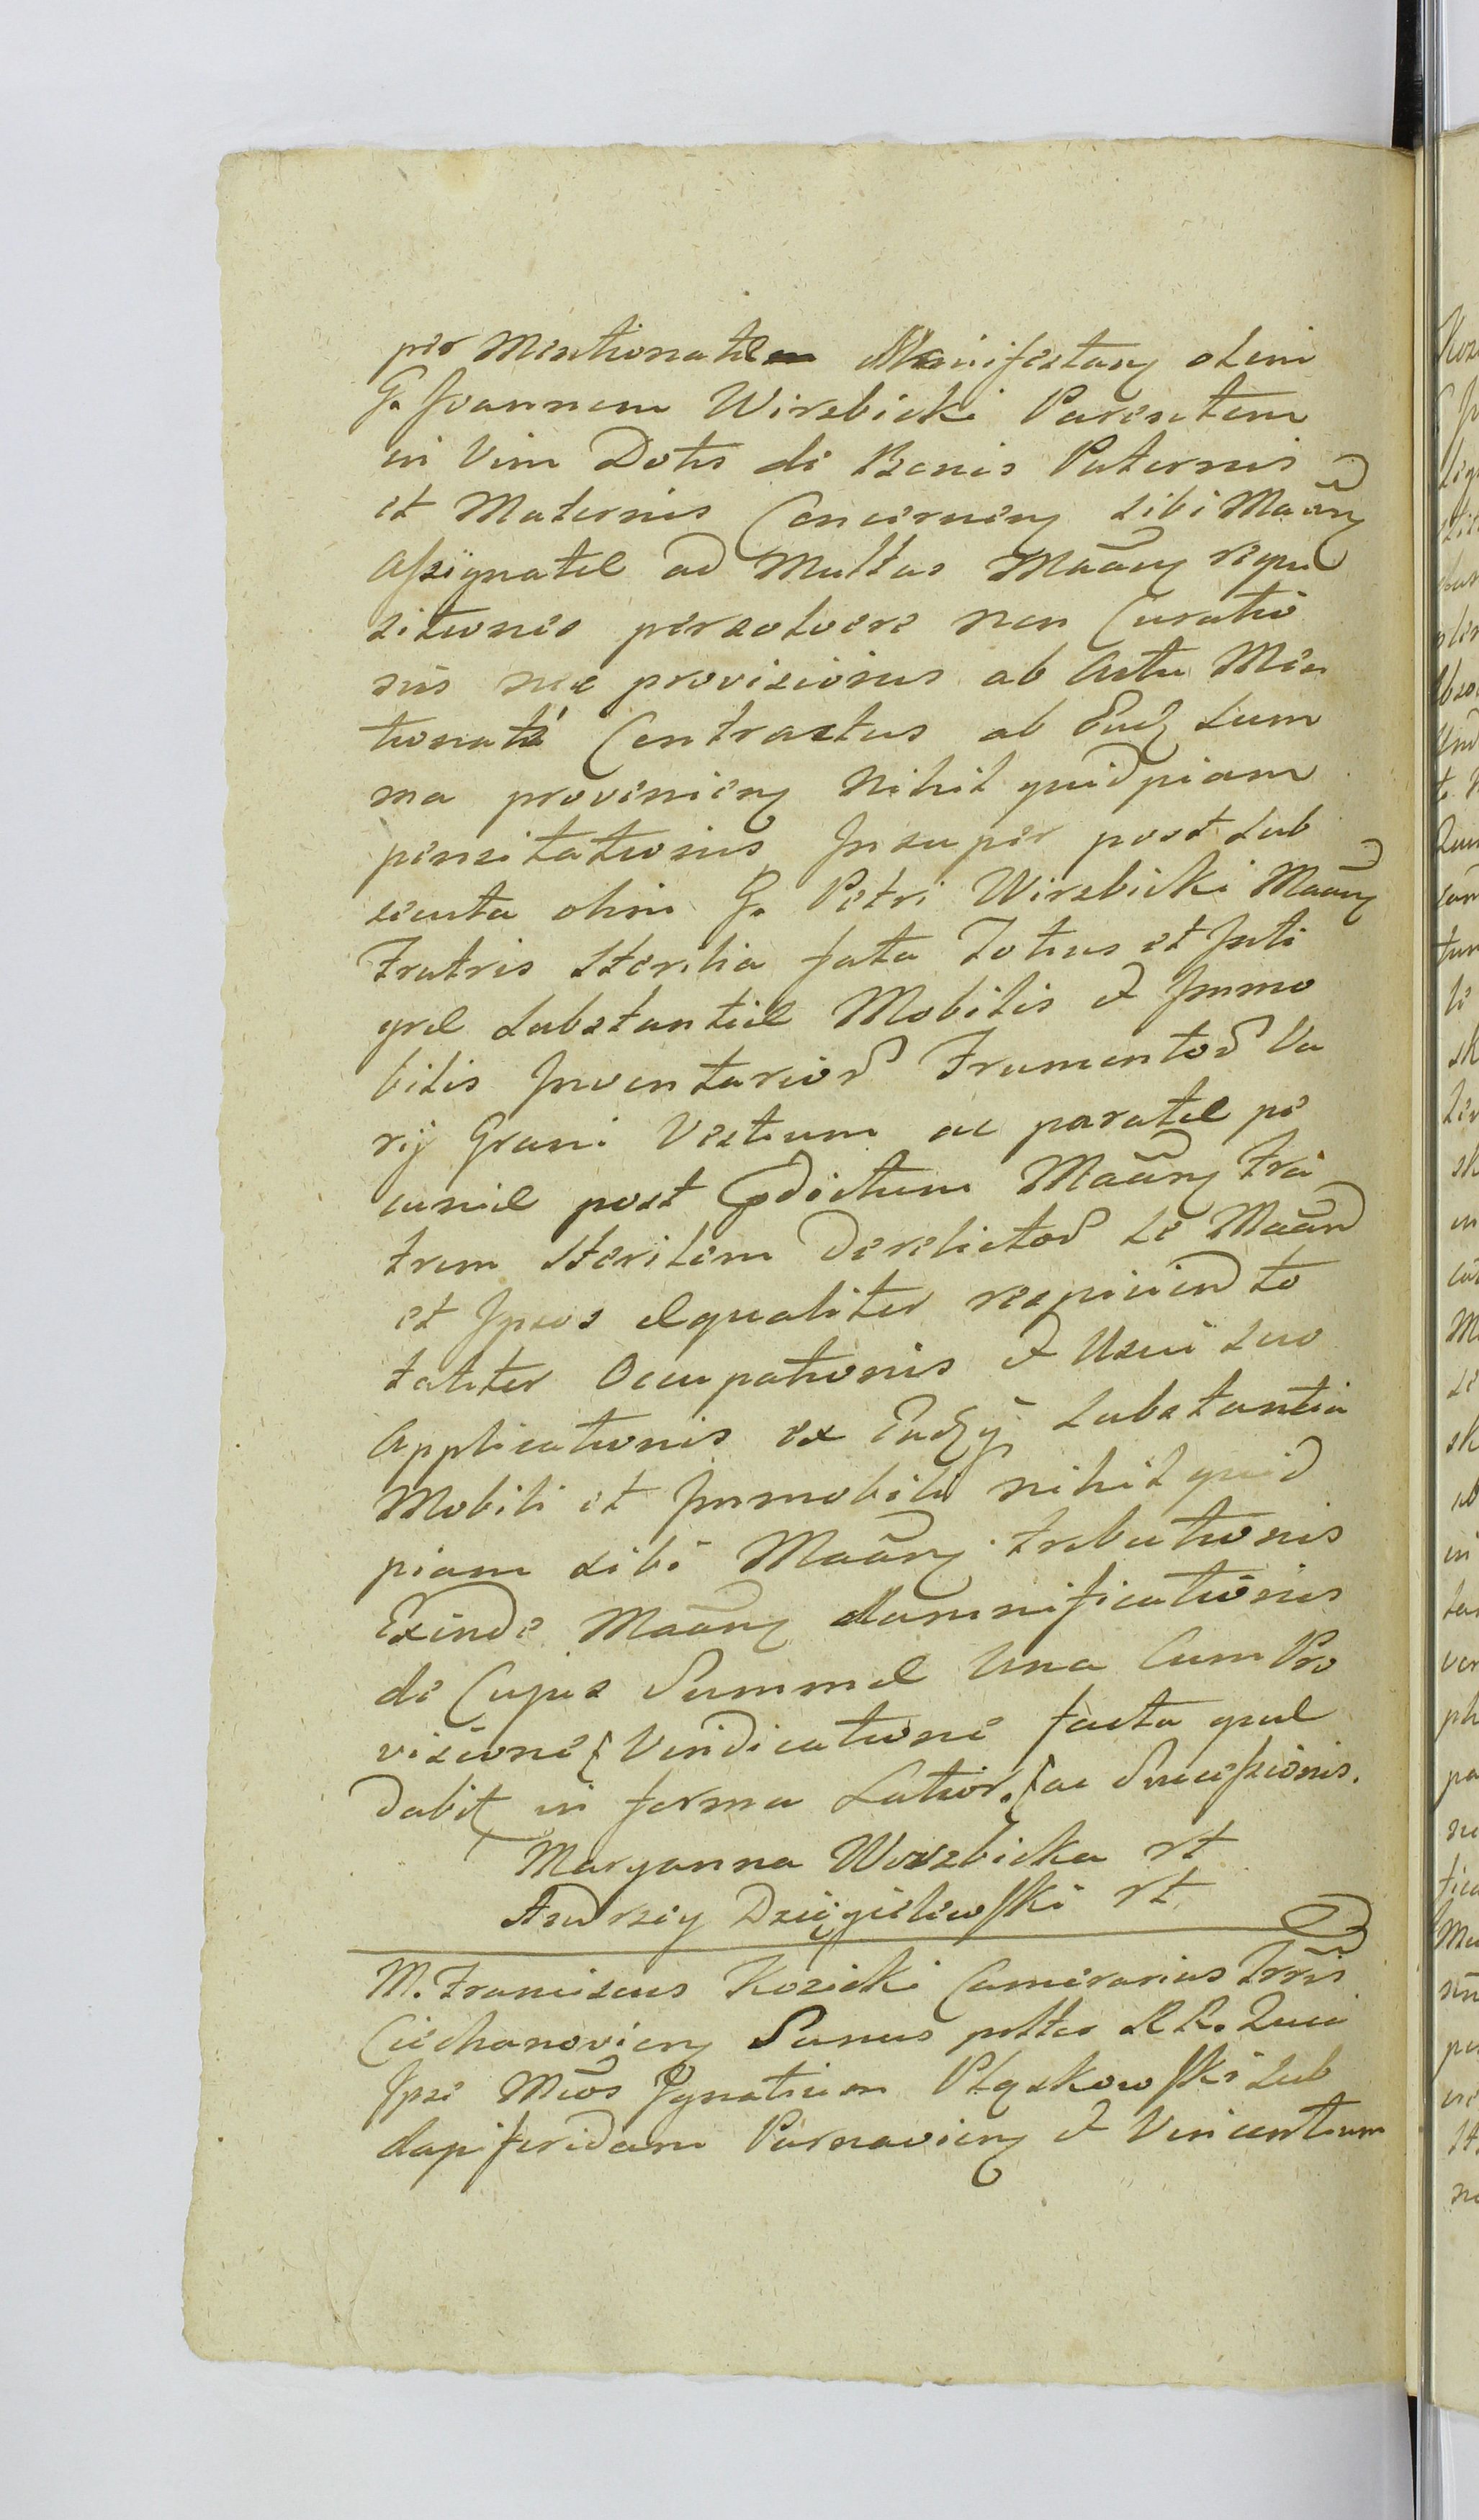 per Mentionatæ Manifestanꝫ olim
G. Joannem Wirzbicki Parentem
in Vim Dotis de Bonis Paternis
et Maternis Concerneñ sibi Maãnꝫ
Assignatæ ad Multas Maãnꝫ requi
sitiones persolvere non Curatio
nis nec provisionis ab Actu Men
tionati Contractus ab Eadꝫ Sum
ma provenieñ Nihil quidpiam
pensitationis Insuper post sub
secuta olim G. Petri Wirzbicki Maãnꝫ
Fratris Sterilia fata Totius et Inte
græ Substantiæ Mobilis et Immo
bilis Inventarioꝝ Frumentoꝝ Va
rij Grani Vestium ac paratæ pe
cuniæ post pdictum Maãnꝫ Fra
trem Sterilem Derelictoꝝ se Maãn
et Ipsos Æqualiter respicieñ to
taliter Occupationis et Usui suo
Applicationis ex Eadꝫ Substantia
Mobili et Immobili nihil quid
piam sibi Maãnꝫ tributionis
Exinde Maãnꝫ damnificationis
de Cujus Summæ Una Cum Pro
visione Vindicatione facta quæ
dabit in forma Latior. ac Successionis.
Maryanna Wirzbicka rt
Andrzey Dzięgielewski rt
M. Franciscus Kozicki Camerarius Trris
Ciechanovieñ Sanus pttes R R. Quia
Ipse Mcos Ignatium Pląskowski Sub
dapiferidam Parnavieñ et Vincentium